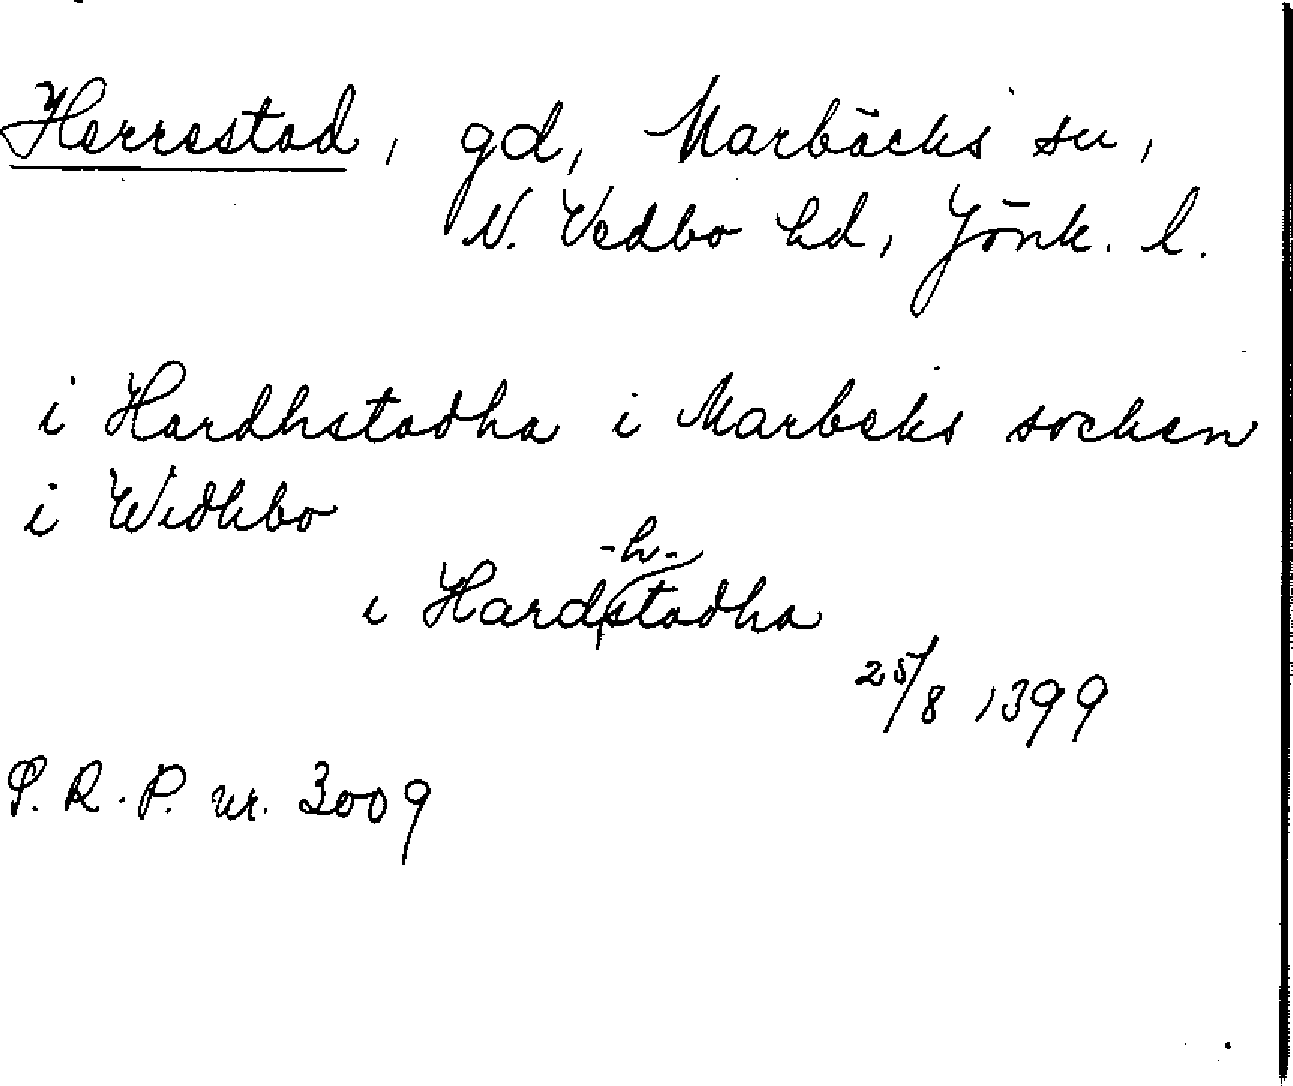 Herrestad, gd, Marbäcks sn,
N. Vedbo hd, Jönk. l.
i Hardhstadha i Marbeks socken
i Widhbo
-h-
i Hardstadha
25/8 1399
S. R. P. nr. 3009